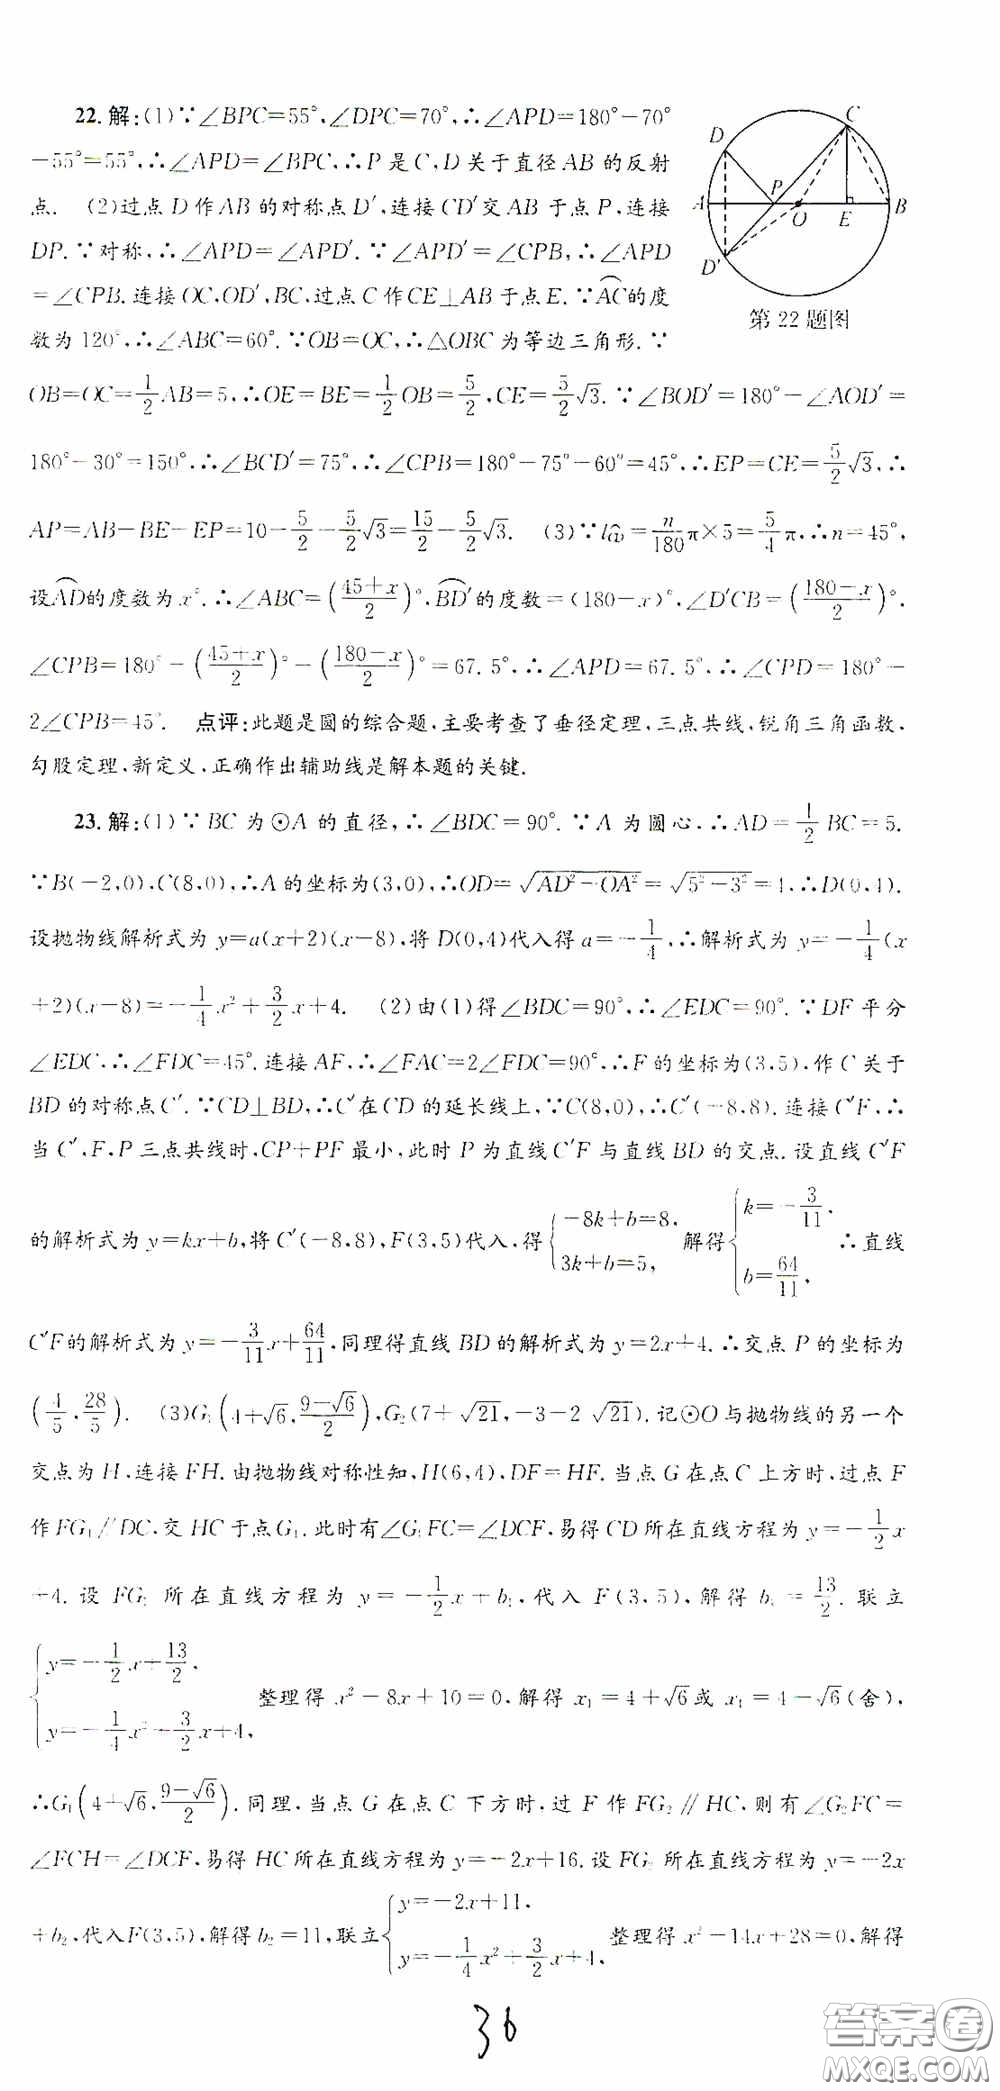 22.解:(1)∵∠BPC=55°,∠DPC=70°,∴∠APD=180°-70°
-55°=55°,∴∠APD=∠BPC,∴P是C,D关于直径AB的反射
点. (2)过点D作AB的对称点D′,连接CD′交AB于点P,连接
DP.∵对称,∴∠APD=∠APD′.∵∠APD′=∠CPB,∴∠APD
=∠CPB.连接OC,OD′,BC,过点C作CE⊥AB于点E.∵AC⌒的度
数为120°,∴∠ABC=60°.∵OB=OC,∴△OBC为等边三角形.∵
OB=OC=1/2AB=5,∴OE=BE=1/2OB=5/2,CE=5/2√3.∵∠BOD′=180°-∠AOD′=
180°-30°=150°,∴∠BCD′=75°,∴∠CPB=180°-75°-60°=45°,∴EP=CE=5/2√3,∴
AP=AB-BE-EP=10-5/2-5/2√3=15/2-5/2√3. (3)∵l_CD⌒=n/180π×5=5/4π,∴n=45°,
设AD⌒的度数为x°.∴∠ABC=((45+x)/2)°,BD′⌒的度数=(180-x)°,∠D′CB=((180-x)/2)°.
∠CPB=180°-((45+x)/2)°-((180-x)/2)°=67.5°,∴∠APD=67.5°,∴∠CPD=180°-
2∠CPB=45°. 点评:此题是圆的综合题,主要考查了垂径定理,三点共线,锐角三角函数,
勾股定理,新定义,正确作出辅助线是解本题的关键.
D
C
A
P
O
E
B
D′
第22题图
23.解:(1)∵BC为⊙A的直径,∴∠BDC=90°.∵A为圆心,∴AD=1/2BC=5.
∵B(-2,0),C(8,0),∴A的坐标为(3,0),∴OD=√(AD²-OA²)=√(5²-3²)=4,∴D(0,4).
设抛物线解析式为y=a(x+2)(x-8),将D(0,4)代入得a=-1/4,∴解析式为y=-1/4(x
+2)(x-8)=-1/4x²+3/2x+4. (2)由(1)得∠BDC=90°,∴∠EDC=90°.∵DF平分
∠EDC,∴∠FDC=45°.连接AF,∴∠FAC=2∠FDC=90°,∴F的坐标为(3,5),作C关于
BD的对称点C′.∵CD⊥BD,∴C′在CD的延长线上,∵C(8,0),∴C′(-8,8).连接C′F,∴
当C′,F,P三点共线时,CP+PF最小,此时P为直线C′F与直线BD的交点.设直线C′F
的解析式为y=kx+b,将C′(-8,8),F(3,5)代入,得{-8k+b=8, 3k+b=5, 解得{k=-3/11, b=64/11, ∴直线
C′F的解析式为y=-3/11x+64/11,同理得直线BD的解析式为y=2x+4.∴交点P的坐标为
(4/5,28/5). (3)G₁(4+√6,(9-√6)/2),G₂(7+√21,-3-2√21).记⊙O与抛物线的另一个
交点为H,连接FH.由抛物线对称性知,H(6,4),DF=HF.当点G在点C上方时,过点F
作FG₁∥DC,交HC于点G₁.此时有∠G₁FC=∠DCF,易得CD所在直线方程为y=-1/2x
+4.设FG₁所在直线方程为y=-1/2x+b₁,代入F(3,5),解得b₁=13/2.联立
{y=-1/2x+13/2, y=-1/4x²+3/2x+4, 整理得x²-8x+10=0,解得x₁=4+√6或x₁=4-√6(舍),
∴G₁(4+√6,(9-√6)/2).同理,当点G在点C下方时,过F作FG₂∥HC,则有∠G₂FC=
∠FCH=∠DCF,易得HC所在直线方程为y=-2x+16.设FG₂所在直线方程为y=-2x
+b₂,代入F(3,5),解得b₂=11,联立{y=-2x+11, y=-1/4x²+3/2x+4, 整理得x²-14x+28=0,解得
36
答案卷
MXQE.COM